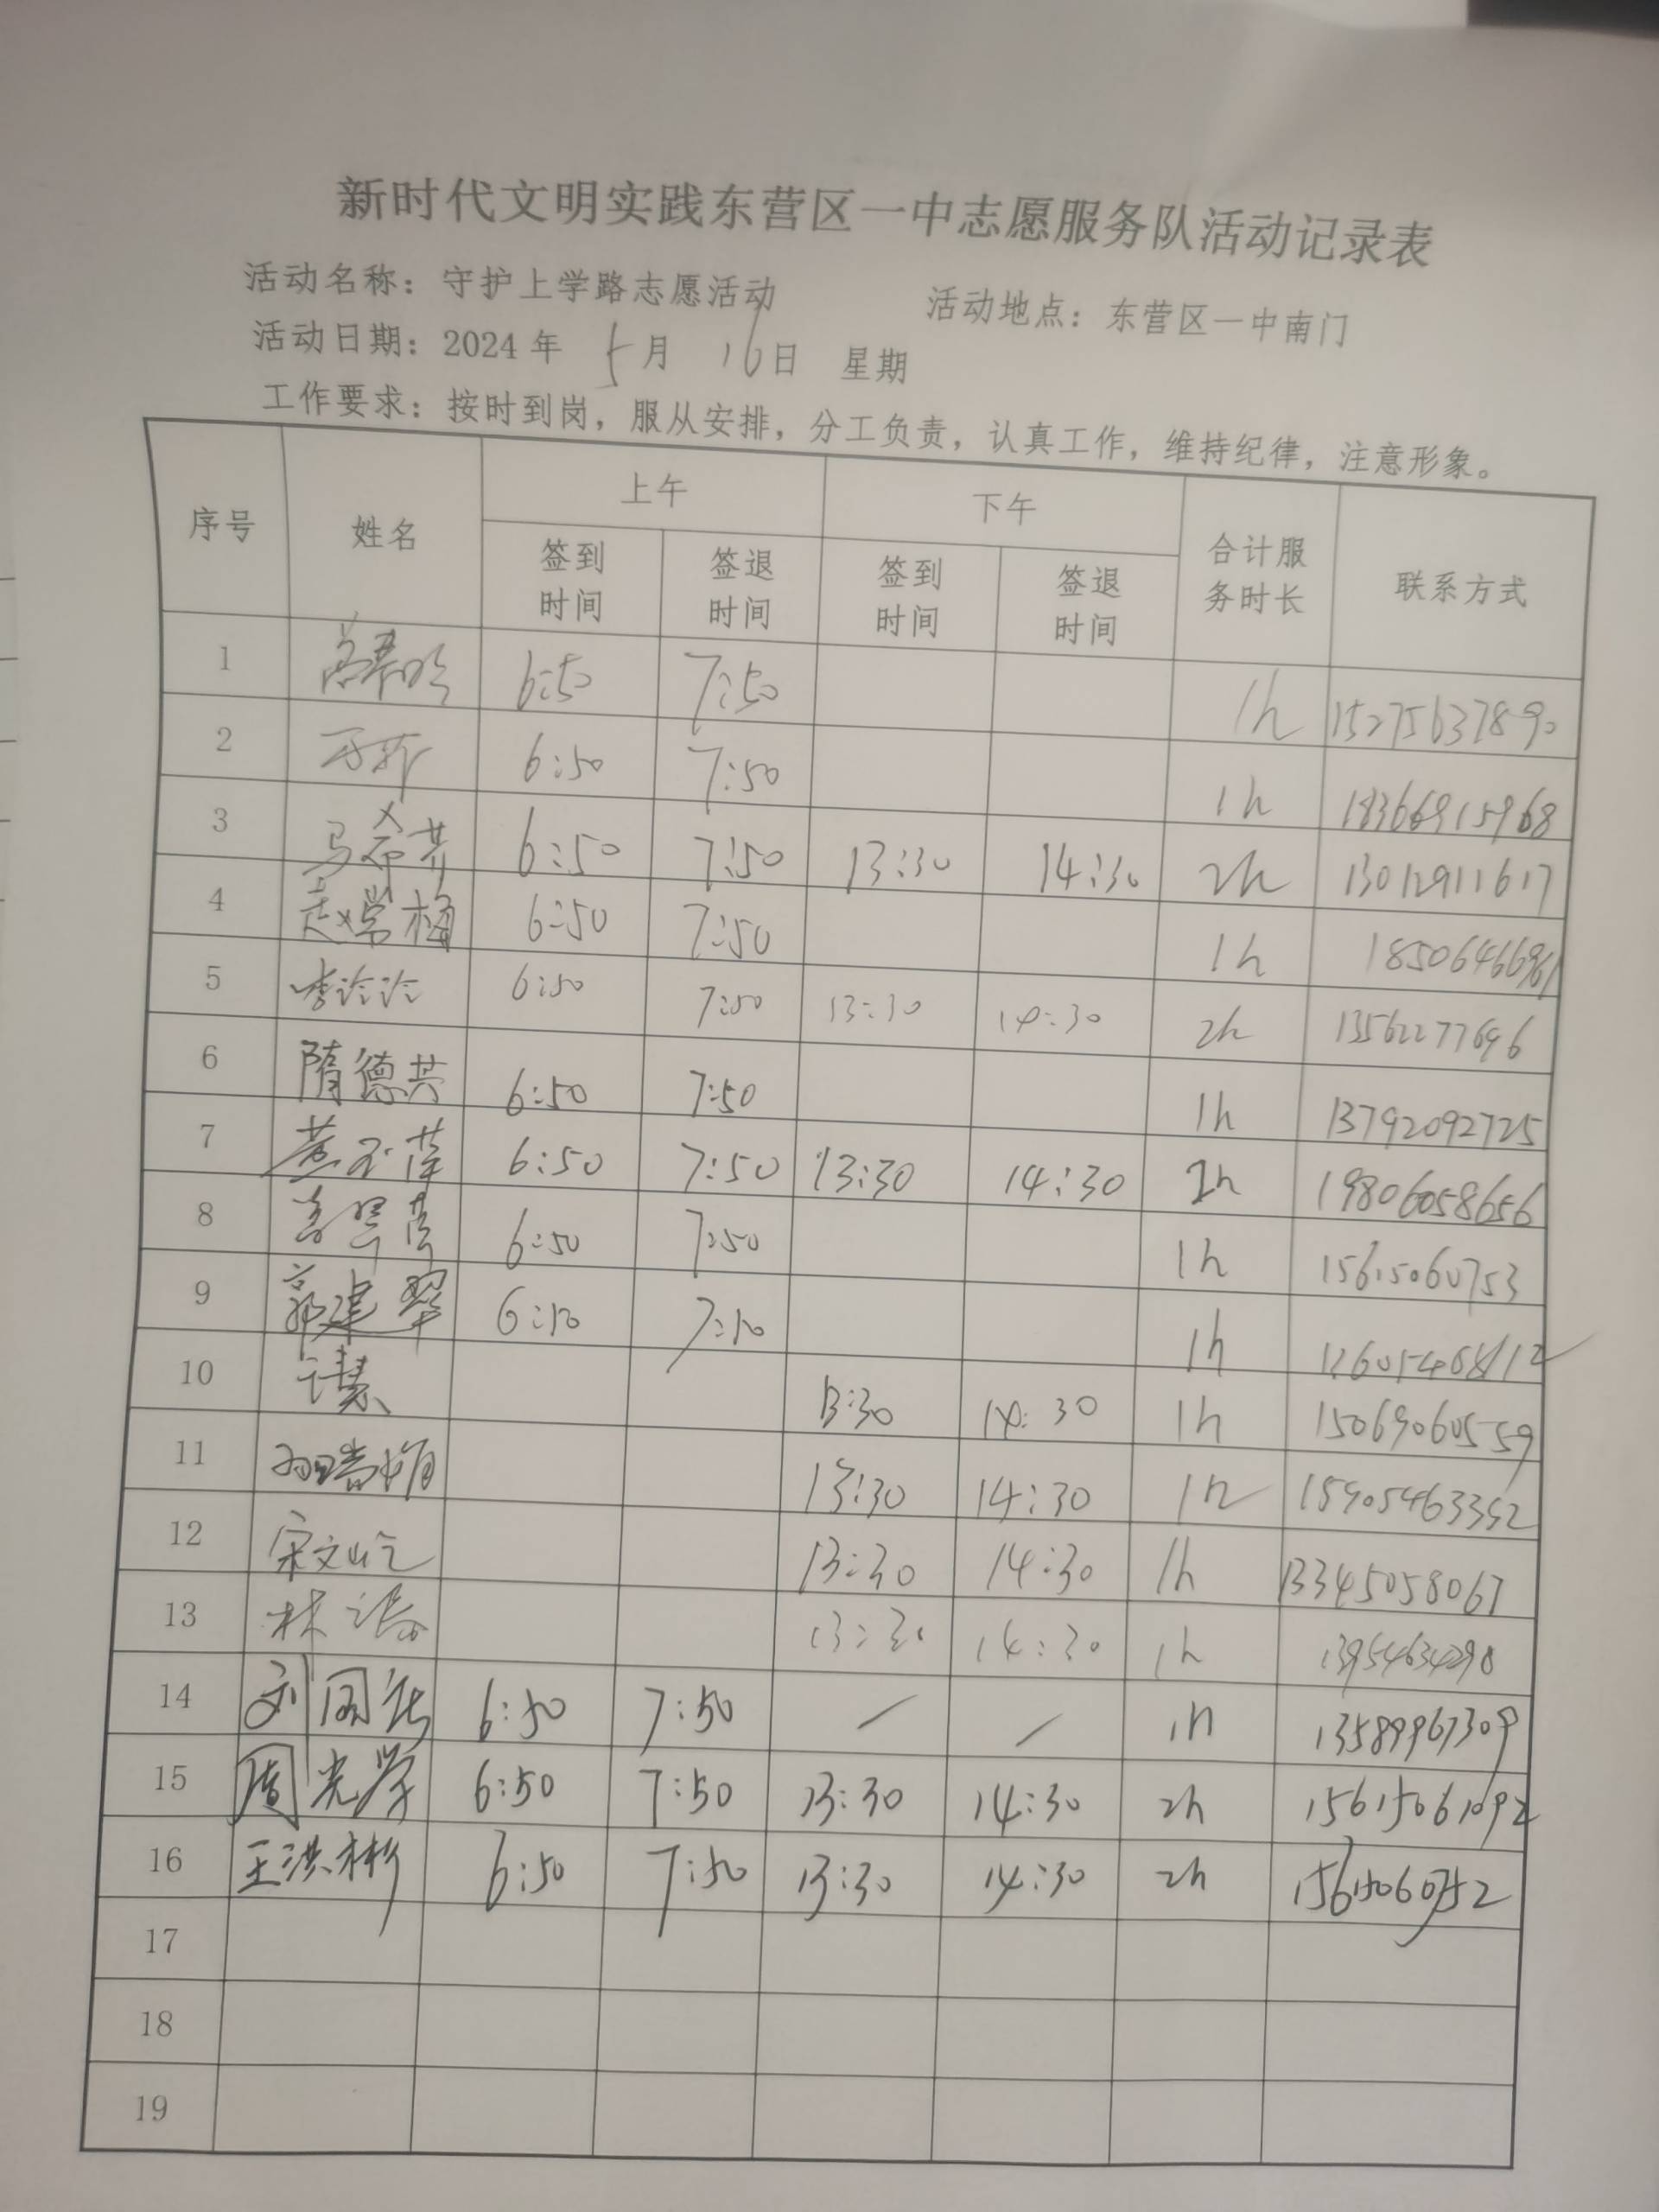 新时代文明实践东营区一中志愿服务队活动记录表
活动名称：守护上学路志愿活动 活动地点：东营区一中南门
活动日期：2024年 5月 16日 星期
工作要求：按时到岗，服从安排，分工负责，认真工作，维持纪律，注意形象。
序号 姓名 上午 下午 合计服务时长 联系方式
签到时间 签退时间 签到时间 签退时间
1 6:50 7:50 1h 15275637890
2 6:50 7:50 1h 18366915968
3 马希芹 6:50 7:50 13:30 14:30 2h 13012911617
4 赵常梅 6:50 7:50 1h
5 李泠泠 6:50 7:50 13:30 14:30 2h 13562277696
6 隋德芸 6:50 7:50 1h 13792092725
7 6:50 7:50 13:30 14:30 2h 19806058656
8 6:50 7:50 1h 15615060753
9 郭建翠 6:50 7:50 1h
10 13:30 14:30 1h 15069060559
11 13:30 14:30 1h 15905463352
12 13:30 14:30 1h 13345058067
13 林 13:30 14:30 1h 13954634298
14 刘国 6:50 7:50 / / 1h 13589967309
15 周光学 6:50 7:50 13:30 14:30 2h 15615061092
16 王洪彬 6:50 7:50 13:30 14:30 2h 15615060752
17
18
19